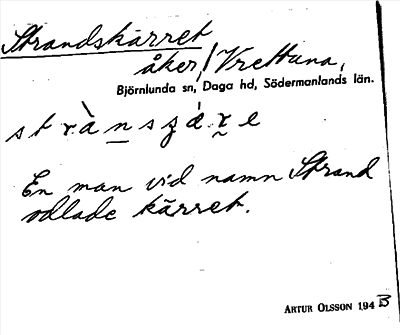 Strandskärret
åker, Vrettuna,
Björnlunda sn, Daga hd, Södermanlands län.
En man vid namn Strand
odlade kärret.
ARTUR OLSSON 194